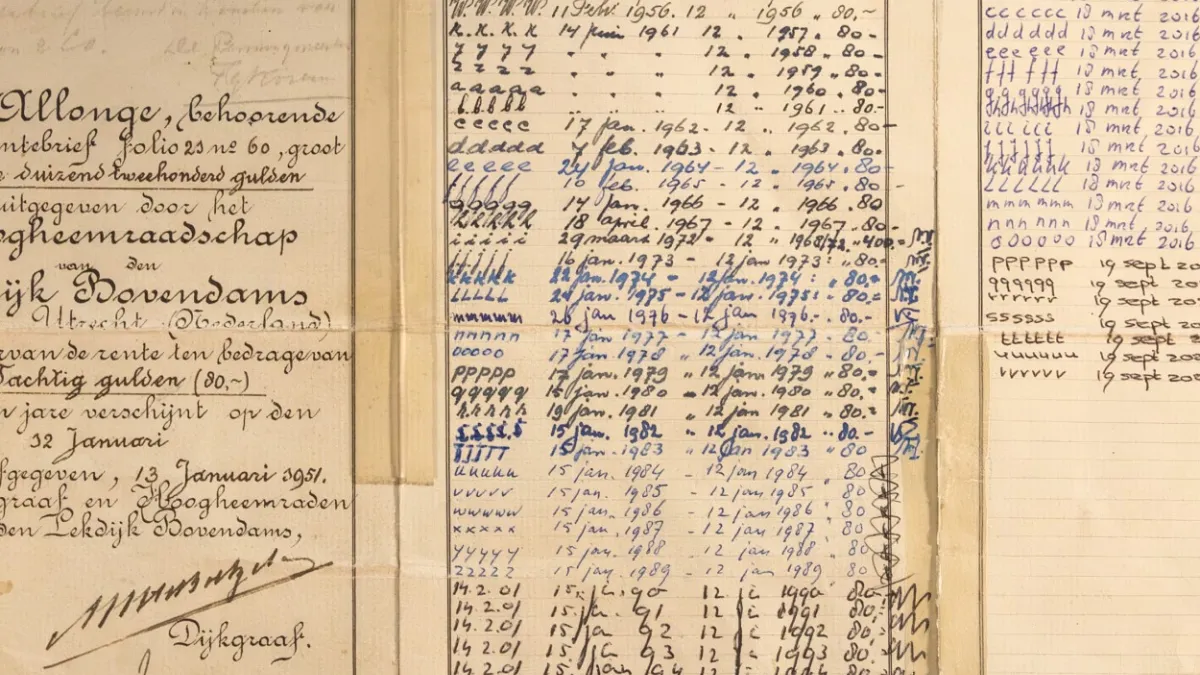 Allonge, behoorende
ntebrief Folio 23 nº 60, groot
duizend tweehonderd gulden
uitgegeven door het
ogheemraadschap
van den
ijk Bovendams
Utrecht (Nederland)
rvan de rente ten bedrage van
Tachtig gulden (80,~)
n jare verschijnt op den
12 Januari
fgegeven, 13 Januari 1951.
graaf en Hoogheemraden
den Lekdijk Bovendams,
Dijkgraaf.
W.W.W.W. 11 Febr. 1956. 12 " 1956 " 80,-
x.x.x.x 14 juni 1961 12 " 1957 " 80-
y y y y " " " 12 " 1958 " 80-
z z z z " " " 12 " 1959 " 80-
aaaaa " " " 12 " 1960 " 80-
bbbbb " " " 12 " 1961 " 80.-
ccccc 17 jan. 1962 - 12 " 1962 . 80-
ddddd 7 feb. 1963 - 12 " 1963 . 80-
eeeee 24 jan. 1964 - 12 " 1964 . 80-
fffff 10 feb. 1965 - 12 " 1965 . 80-
ggggg 14 jan. 1966 - 12 " 1966 . 80
hhhhh 18 april. 1967 - 12 " 1967 . 80-
iiiii 29 maart 1972 - 12 " 1968/72 " 400.-
jjjjj 16 jan. 1973 - 12 jan 1973 : " 80.-
kkkkk 22 jan. 1974 - 12 jan. 1974 : " 80,=
LLLLL 24 jan. 1975 - 12 jan. 1975 : " 80,=
mmmmm 26 jan 1976 - 12 jan. 1976.- 80.-
nnnnn 17 jan 1977 - 12 jan. 1977 - 80.
ooooo 17 jan. 1978 " 12 jan. 1978 - 80,-
PPPPP 17 jan. 1979 " 12 jan. 1979 " 80.=
qqqqq 15 jan. 1980 - 12 jan. 1980 " 80.=
rrrrr 19 jan. 1981 " 12 jan. 1981 " 80.=
sssss 15 jan. 1982 " 12 jan. 1982 " 80.-
ttttt 15 jan. 1983 " 12 jan 1983 " 80
uuuuu 15 jan. 1984 - 12 jan 1984 , 80
vvvvv 15 jan. 1985 - 12 jan 1985 , 80
wwwww 15 jan. 1986 - 12 jan 1986 , 80
xxxxx 15 jan. 1987 - 12 jan 1987 , 80
yyyyy 15 jan. 1988 " 12 jan 1988 " 80
zzzzz 15 jan. 1989 - 12 jan 1989 , 80
14.2.01 15. 90 12 1990 80,-
14.2.01 15. 91 12 1991 80,-
14.2.01 15 ja 92 12 1992 80,
14.2.01 15. 93 12 1993 80,
14.2.01 15. jan 94 12 1994 80
cccccc 18 mrt 2016
dddddd 18 mrt 2016
eeeeee 18 mrt 2016
ffffff 18 mrt. 2016
gggggg 18 mrt. 2016
hhhhhh 18 mrt. 2016
iiiiii 18 mrt, 2016
jjjjjj 18 mrt. 2016
kkkkkk 18 mrt 2016
LLLLLL 18 mrt 2016
mmmmmm 18 mrt 2016
nnnnnn 18 mrt 2016
oooooo 18 mrt 2016
PPPPPP 19 sept 20
qqqqqq 19 sept 20
rrrrrr 19 sept 20
ssssss 19 sept 20
tttttt 19 sept 20
uuuuuu 19 sept 20
vvvvvv 19 sept 20